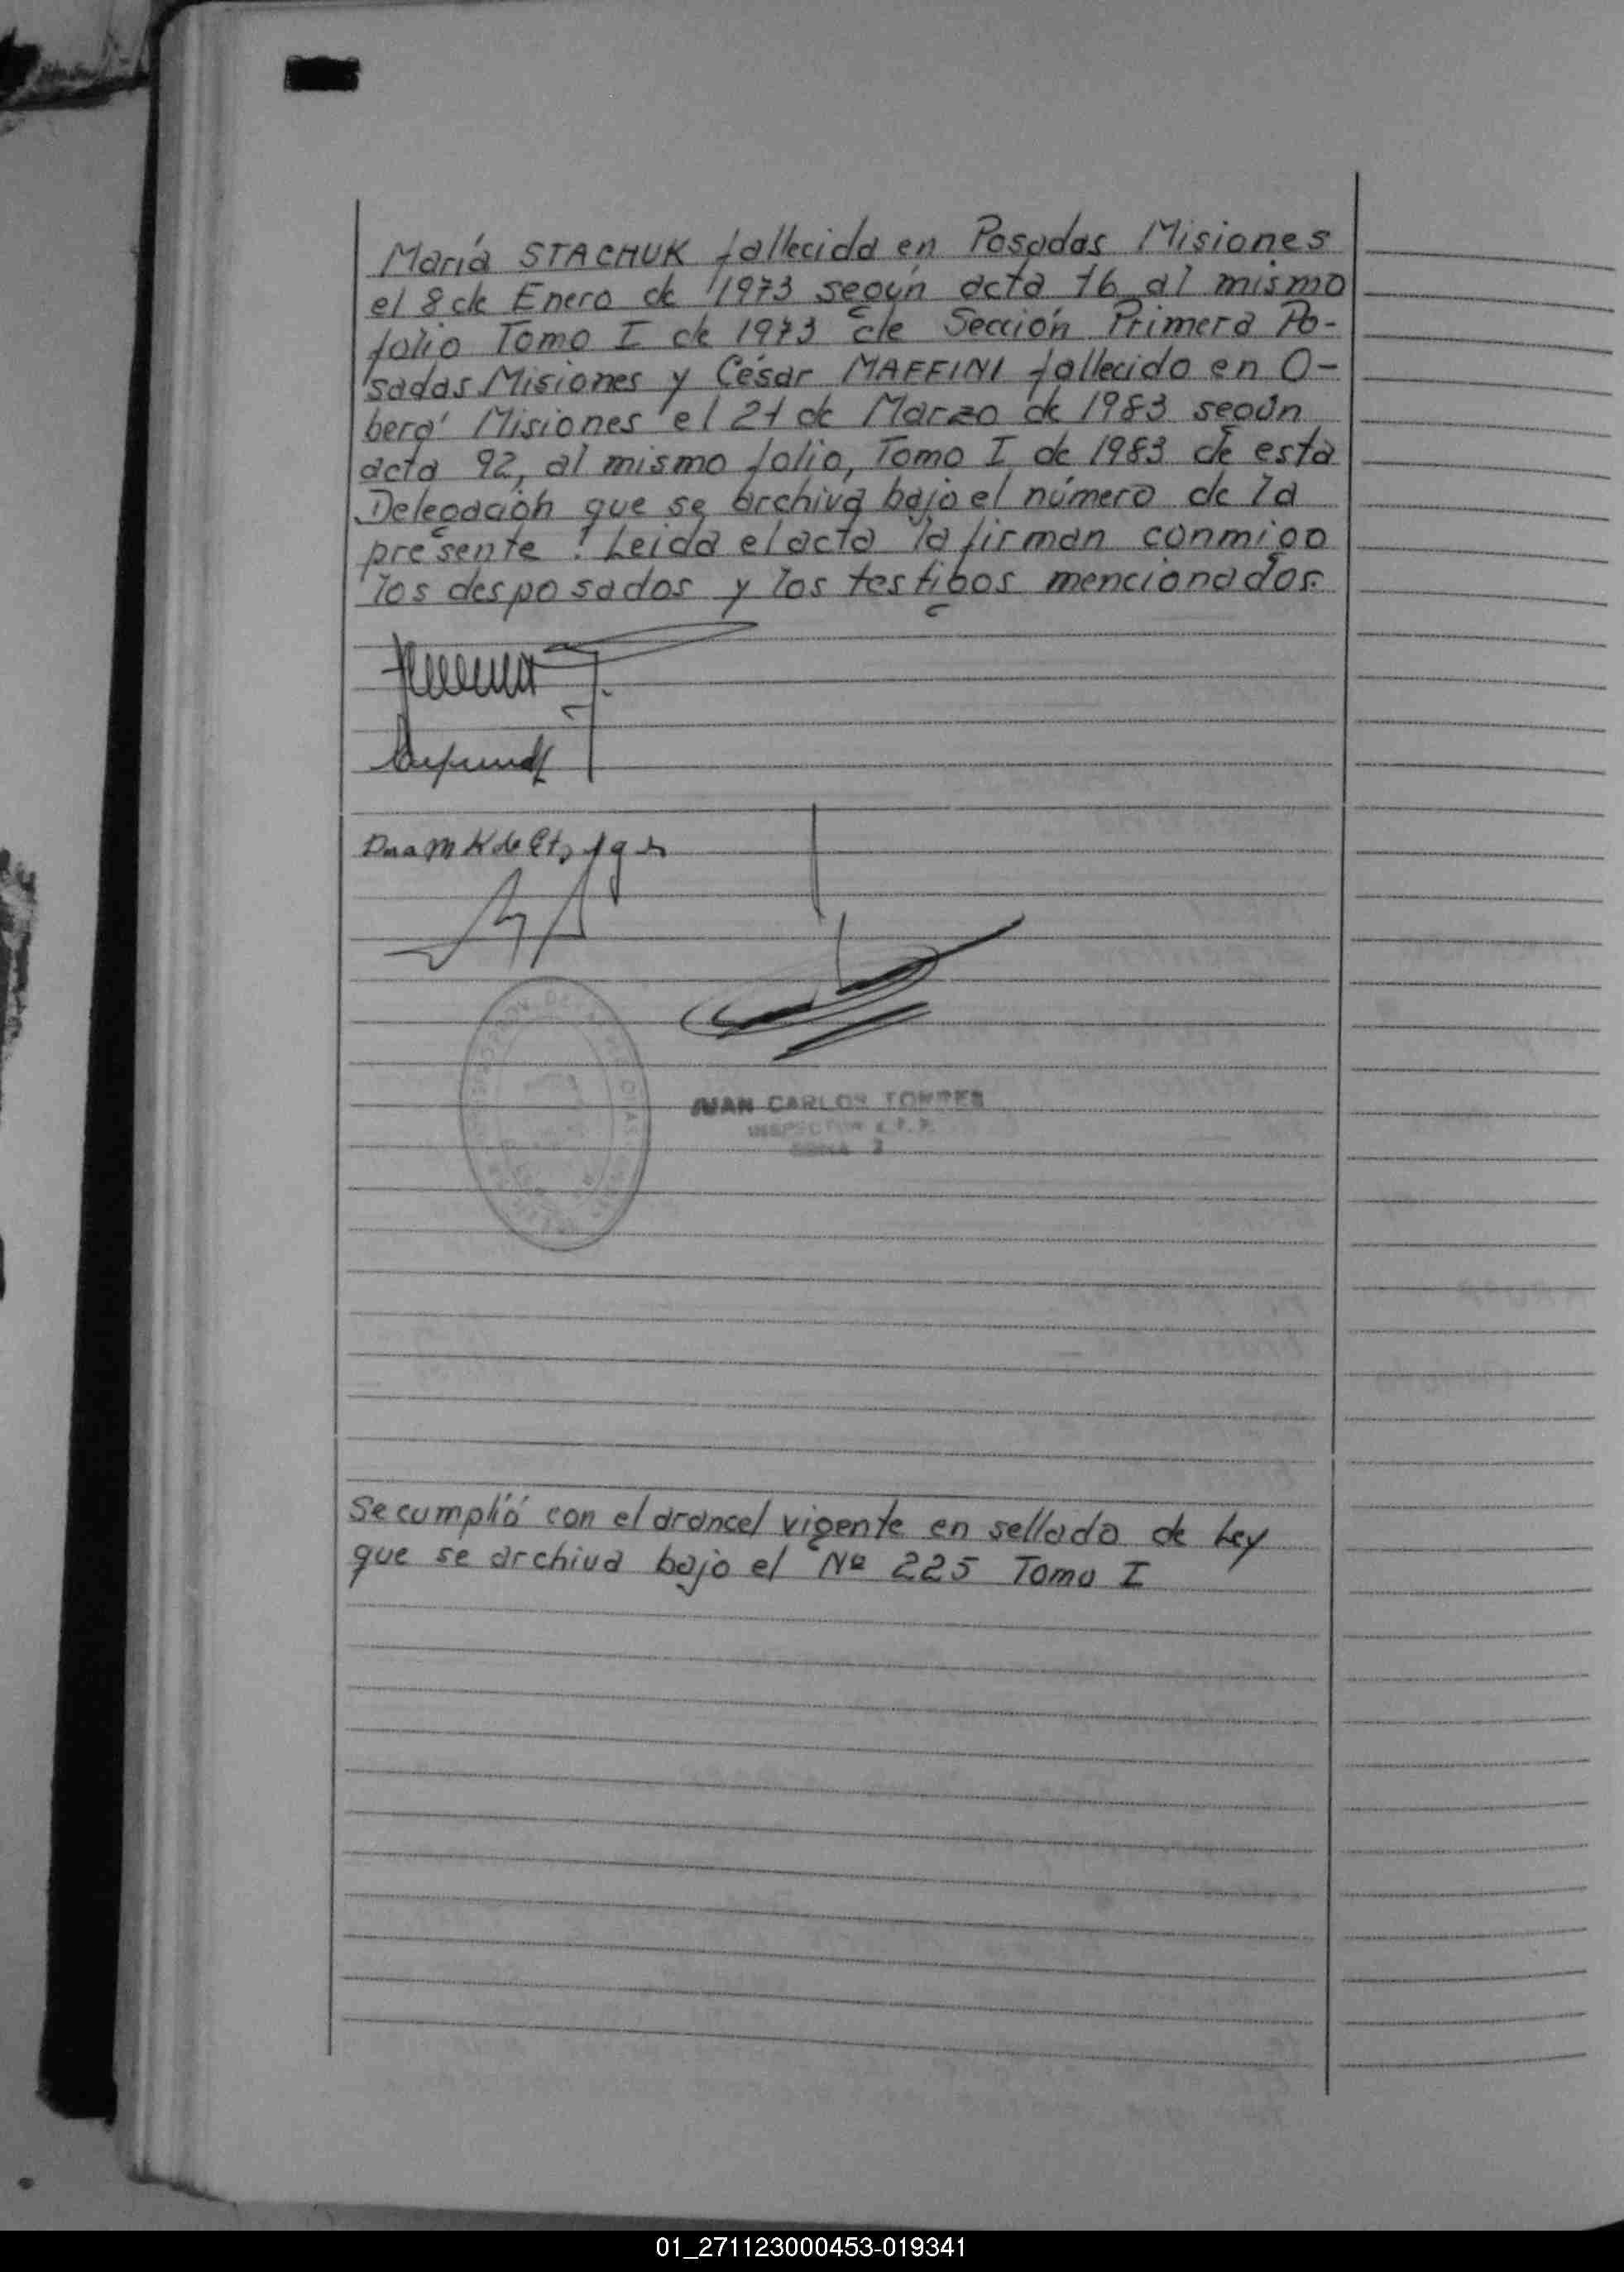 María STACHUK fallecida en Posadas Misiones
el 8 de Enero de 1973 según acta 16 al mismo
folio Tomo I de 1973 de Sección Primera Po-
sadas Misiones y César MAFFINI fallecido en O-
berá Misiones el 21 de Marzo de 1983 según
acta 92, al mismo folio, Tomo I de 1983 de esta
Delegación que se archiva bajo el número de la
presente! Leida el acta la firman conmigo
los desposados y los testigos mencionados.
JUAN CARLOS TORRES
Se cumplió con el arancel vigente en sellado de Ley
que se archiva bajo el Nº 225 Tomo I
01_271123000453-019341